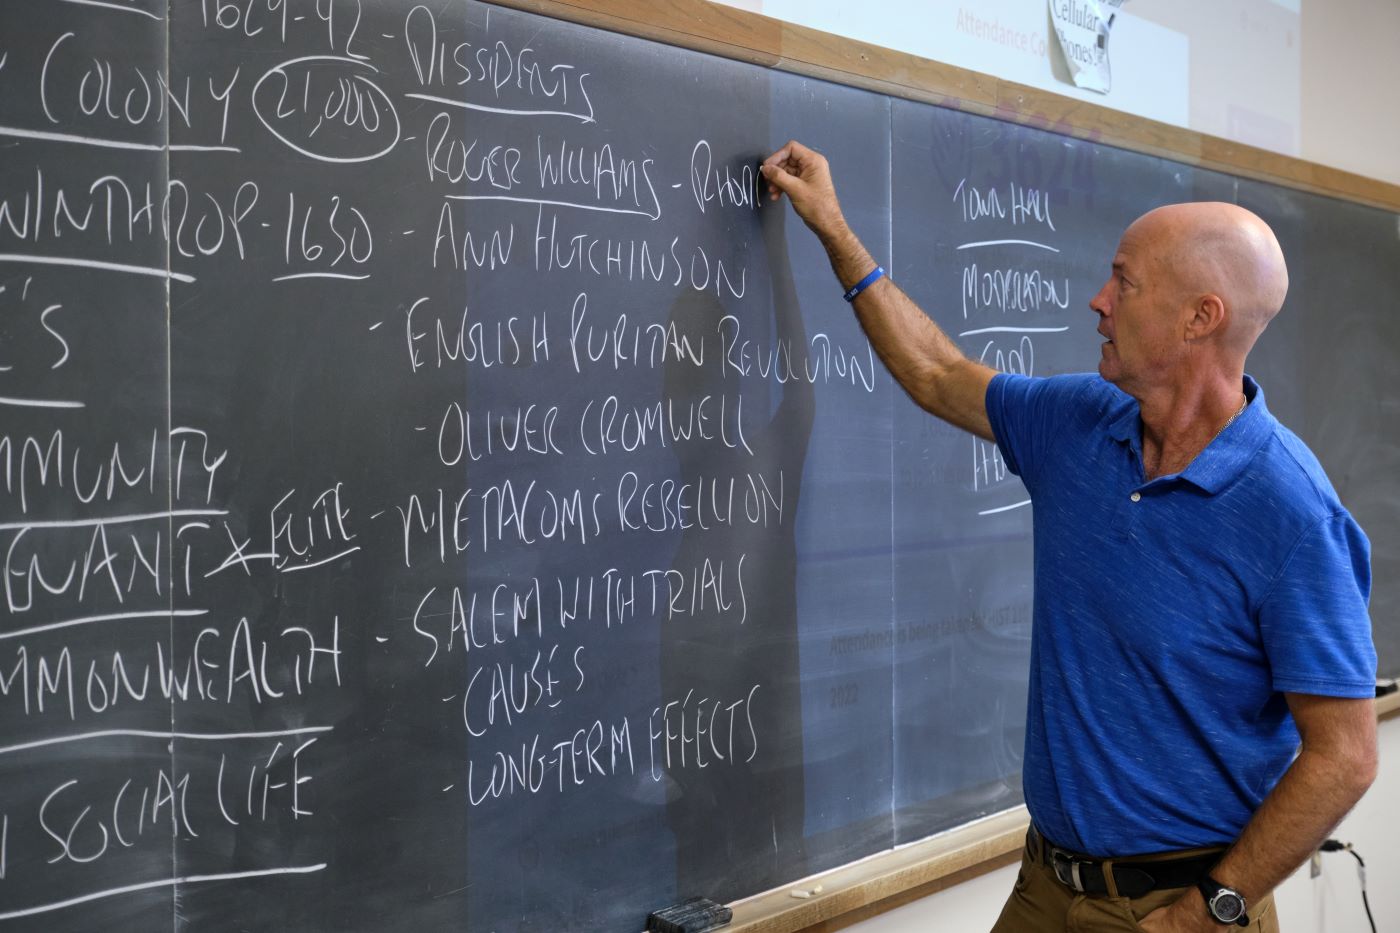 1629-42
COLONY 21,000
WINTHROP - 1630
E'S
MMUNITY
ENANT x ELITE
MMONWEALTH
N SOCIAL LIFE
- DISSIDENTS
- ROGER WILLIAMS - RHOD
- ANN HUTCHINSON
- ENGLISH PURITAN REVOLUTION
- OLIVER CROMWELL
- METACOM'S REBELLION
- SALEM WITH TRIALS
- CAUSES
- LONG-TERM EFFECTS
TOWN HALL
MODERATION
Cellular
Phones!
Attendance Co
3624
Attendance is being taken for HIST 21
2022